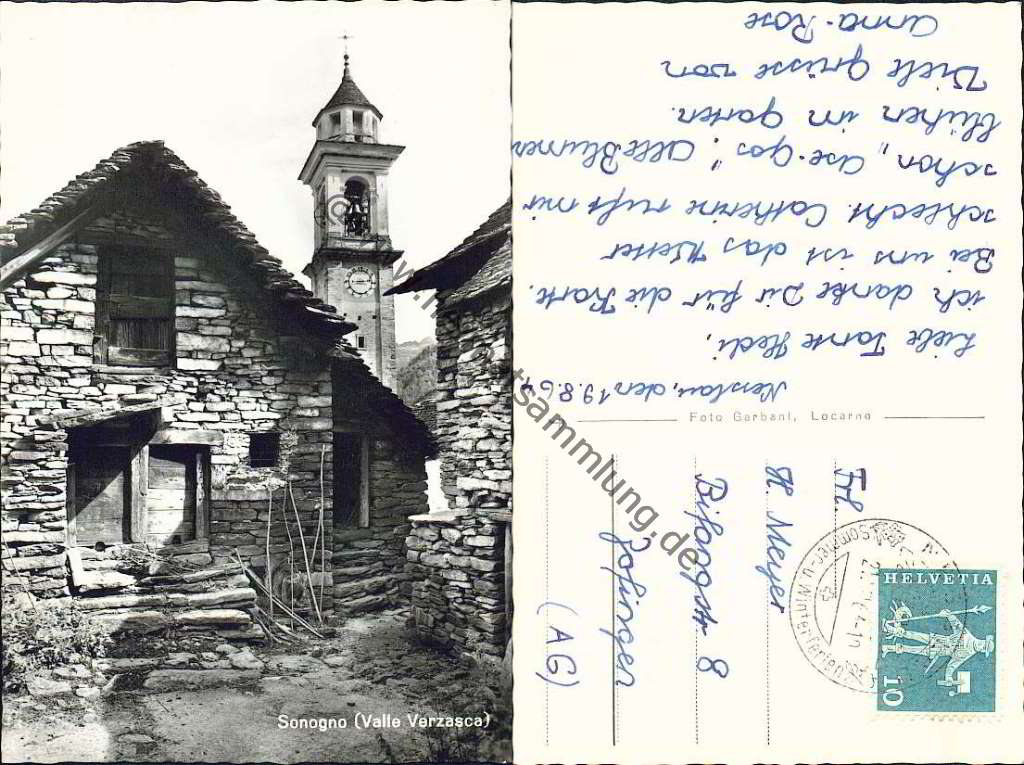 Sonogno (Valle Verzasca)
Foto Garbani, Locarno
Nesslau, den 19.8.64
Liebe Tante Hedi,
ich danke Dir für die Karte.
Bei uns ist das Wetter
schlecht. Catherine ruft mir
schon „Ase-Gos". Alle Blumen
blühen im Garten.
Viele Grüsse von
Anna-Rose
Frl.
H. Meyer
Bifangstr. 8
Zofingen
(AG)
HELVETIA
10